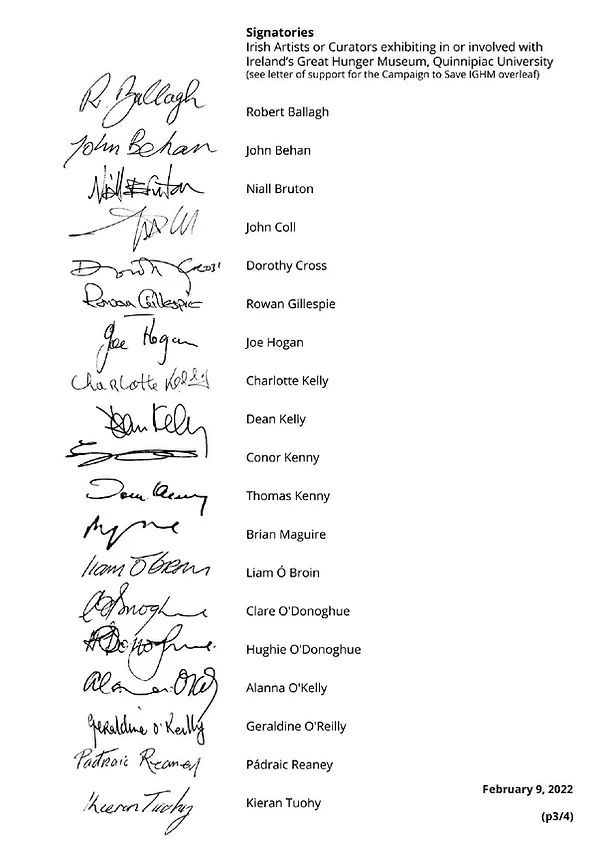 Signatories
Irish Artists or Curators exhibiting in or involved with
Ireland's Great Hunger Museum, Quinnipiac University
(see letter of support for the Campaign to Save IGHM overleaf)
R. Ballagh Robert Ballagh
John Behan John Behan
Niall Bruton Niall Bruton
John Coll
Dorothy Cross Dorothy Cross
Rowan Gillespie Rowan Gillespie
Joe Hogan Joe Hogan
Charlotte Kelly Charlotte Kelly
Dean Kelly Dean Kelly
Conor Kenny
Tom Kenny Thomas Kenny
Brian Maguire
Liam Ó Broin Liam Ó Broin
Clare O'Donoghue
Hughie O'Donoghue
Alanna O'Kelly
Geraldine O'Reilly Geraldine O'Reilly
Padraic Reaney Pádraic Reaney
Kieran Tuohy Kieran Tuohy
February 9, 2022
(p3/4)